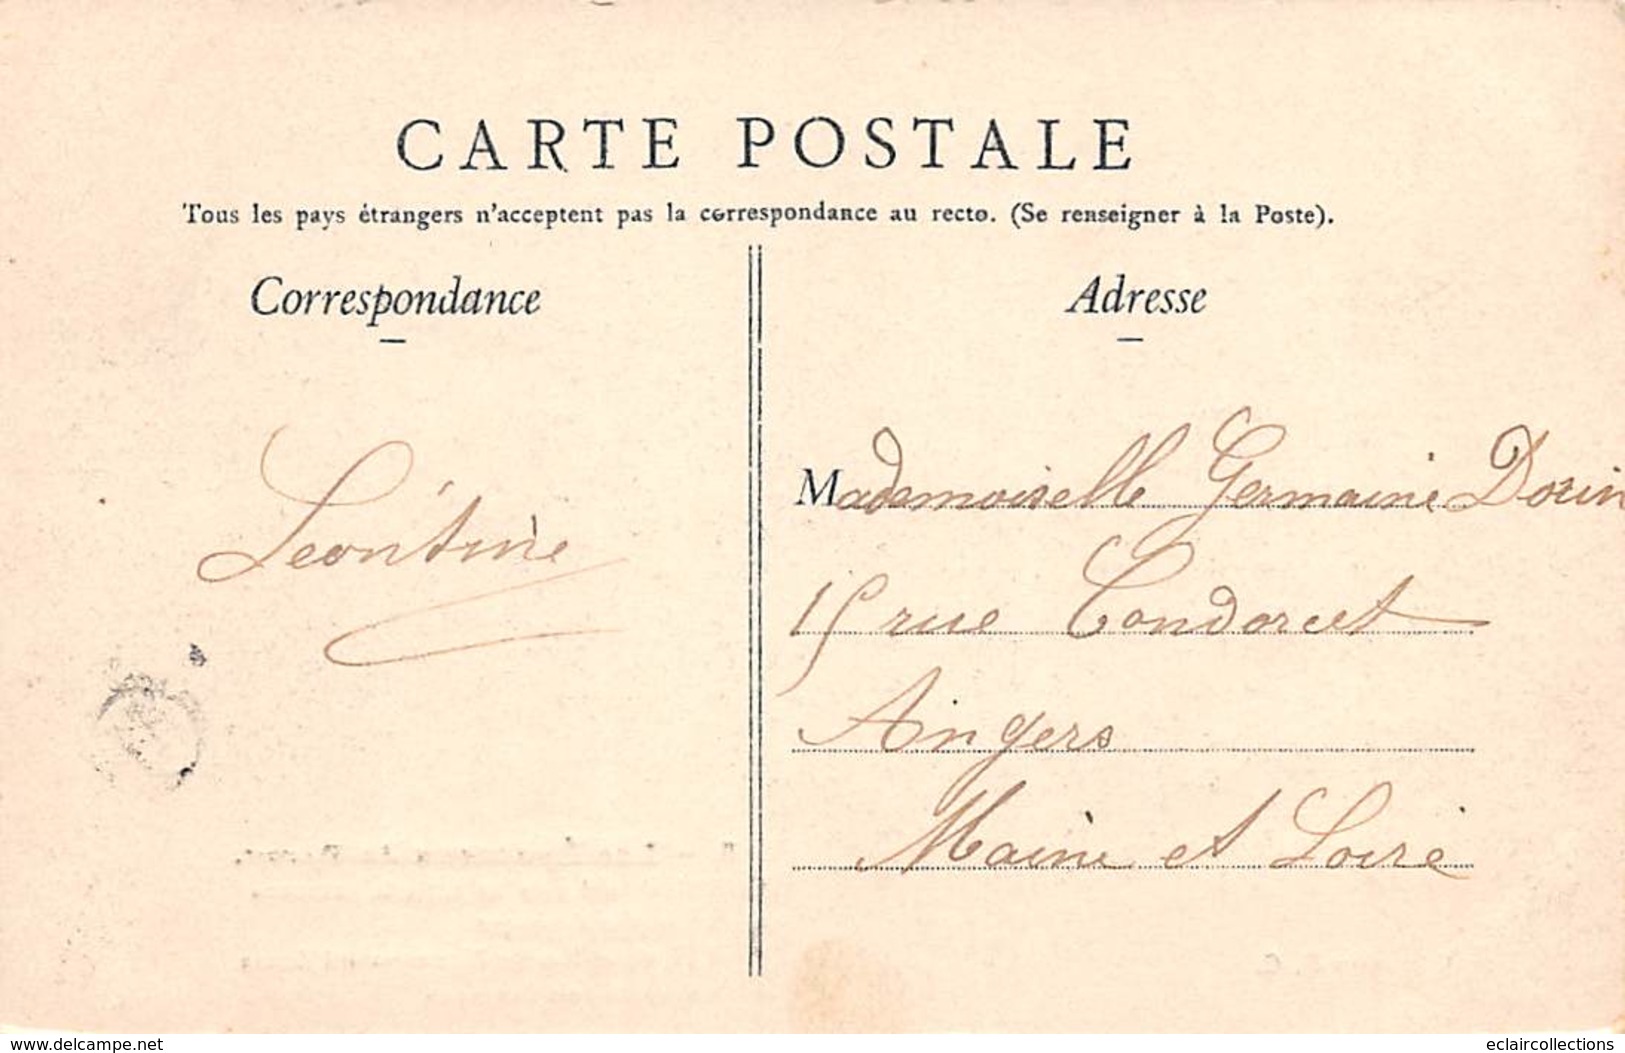 CARTE POSTALE
Tous les pays étrangers n'acceptent pas la correspondance au recto. (Se renseigner à la Poste).
Correspondance
Adresse
Léontine
Mademoiselle Germaine Dorin
15 rue Condorcet
Angers
Maine et Loire
www.delcampe.net
eclaircollections